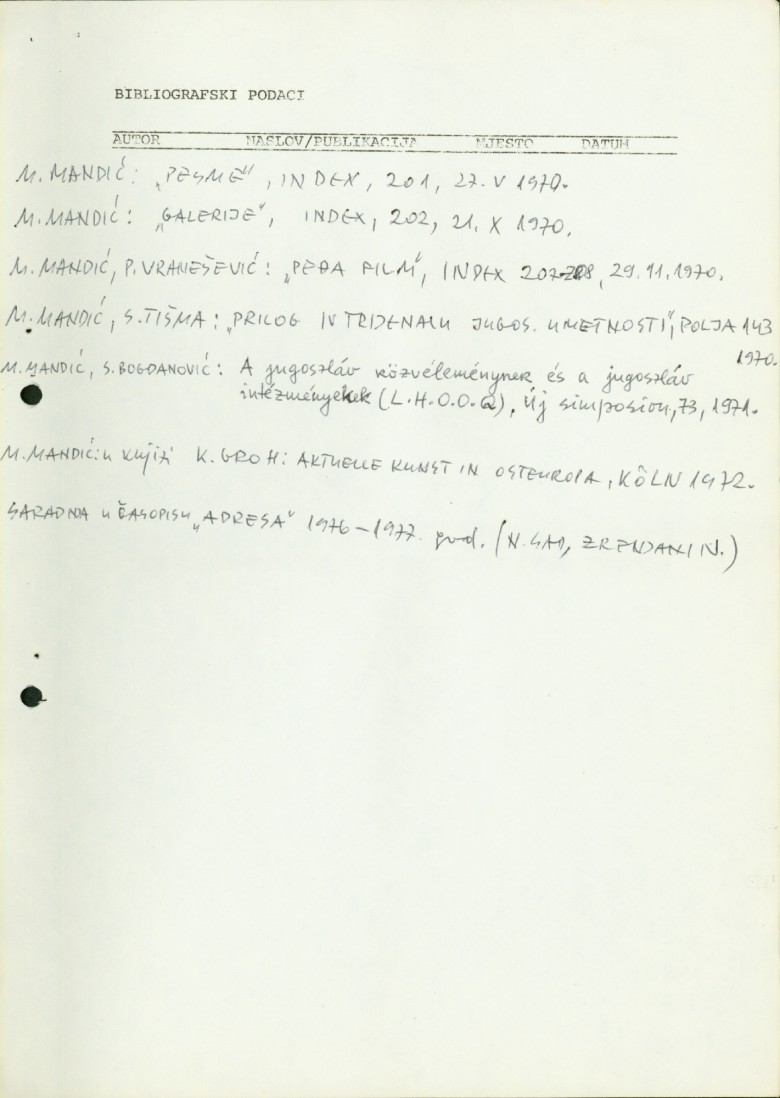 BIBLIOGRAFSKI PODACI
AUTOR NASLOV/PUBLIKACIJA MJESTO DATUM
M. MANDIĆ: „PESME", INDEX, 201, 27. V 1970.
M. MANDIĆ: „GALERIJE", INDEX, 202, 21. X 1970.
M. MANDIĆ, P. VRANEŠEVIĆ: „PEĐA FILM", INDEX 207-208, 29.11.1970.
M. MANDIĆ, S. TIŠMA: „PRILOG IV TRIJENALU JUGOS. UMETNOSTI", POLJA 143
1970.
M. MANDIĆ, S. BOGDANOVIĆ: A jugoszláv közvéleménynek és a jugoszláv
intézményeknek (L.H.O.O.Q), Új simposion, 73, 1971.
M. MANDIĆ: u knjizi K. GROH: AKTUELLE KUNST IN OSTEUROPA, KÖLN 1972.
SARADNJA u ČASOPISU „ADRESA" 1976-1977. god. (N. SAD, ZRENJANIN.)